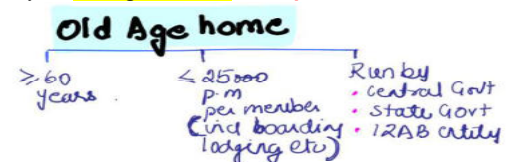 Old Age home
≥ 60
years.
≤ 25000
p.m
per member
(incl boarding
lodging etc)
Run by
• Central Govt
• State Govt
• 12AB entity